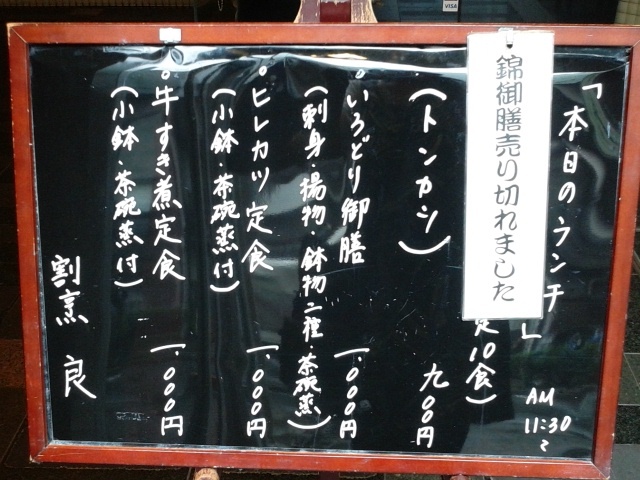 「本日のランチ」
AM
11:30
〜
錦御膳売り切れました
定10食)
(トンカツ) 九00円
・いろどり御膳 一、000円
(刺身・揚物・鉢物二種 茶碗蒸)
・ヒレカツ定食 一、000円
(小鉢・茶碗蒸付)
・牛すき煮定食 一、000円
(小鉢・茶碗蒸付)
割烹 良
VISA